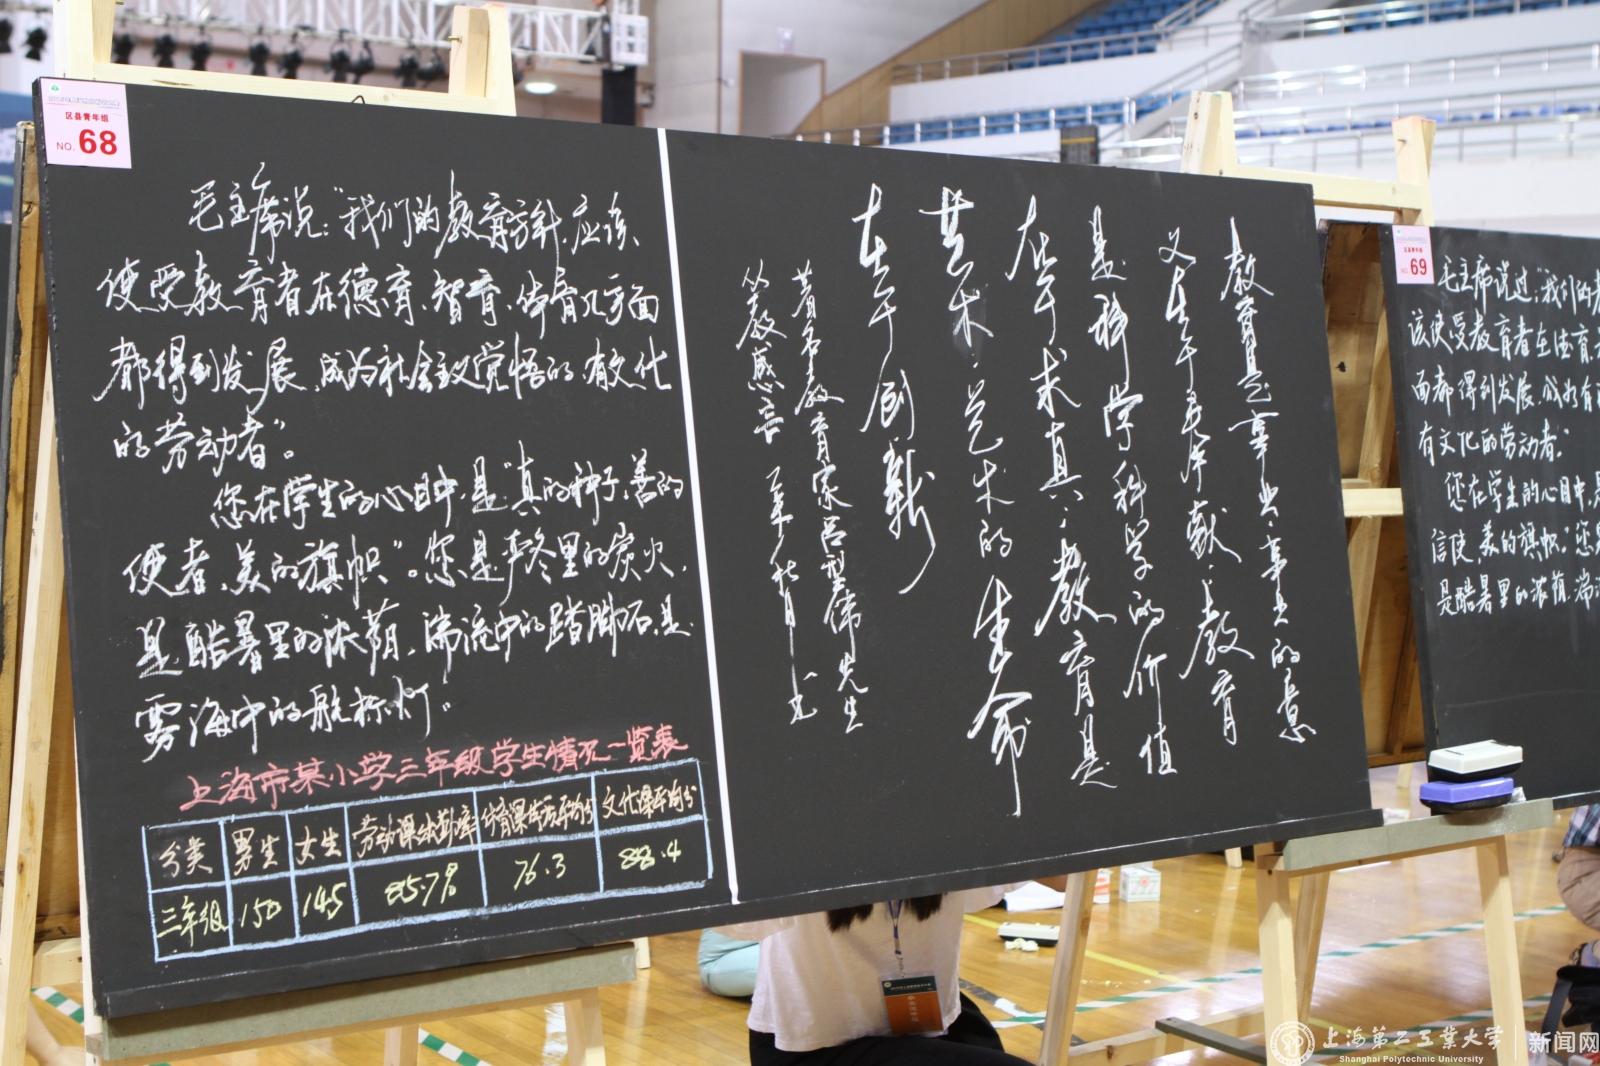 区县青年组
NO. 68
毛主席说：“我们的教育方针，应该
使受教育者在德育、智育、体育几方面
都得到发展，成为社会主义觉悟的、有文化
的劳动者”。
您在学生的心目中，是“真的种子，善的
使者，美的旗帜”。您是严冬里的炭火，
是酷暑里的浓荫，湍流中的踏脚石，是
雾海中的航标灯。
上海市某小学三年级学生情况一览表
分类 男生 女生 劳动课 体育课 平均分 文化课平均分
三年级 150 145 85.7% 76.3 88.4
教育是事业·事业的意
义在于奉献·教育
是科学科学的价值
在于求真·教育是
艺术·艺术的生命
在于创新
著名教育家吕型伟先生
从教感言
区县青年组
NO. 69
毛主席说过：“我们的
该使受教育者在德育、
面都得到发展，成为有
有文化的劳动者”
您在学生的心目中，是
信使，美的旗帜”。您
是酷暑里的浓荫，湍
上海第二工业大学
Shanghai Polytechnic University
新闻网